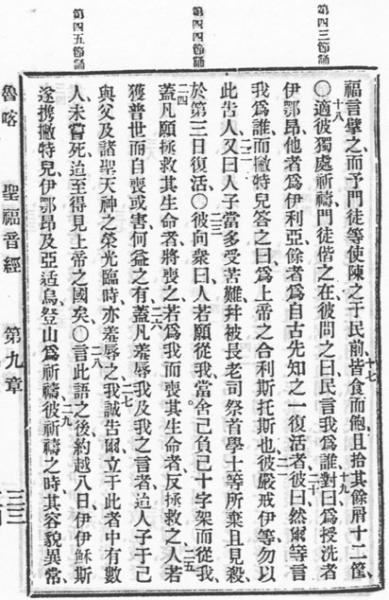 第四三節誦
第四四節誦
第四五節誦
福言擘之而予門徒等使陳之于民前十七皆食而飽且拾其餘屑十二筐、
十八○適彼獨處祈禱門徒偕之在彼問之曰民言我爲誰十九對曰爲授洗者
伊鄂昂他者爲伊利亞餘者爲自古先知之一復活者二十彼曰然爾等言
我爲誰而撇特兒答之曰爲上帝之合利斯托斯也二一彼嚴戒伊等勿以
此告人二二又曰人子當多受苦難幷被長老司祭首學士等所棄且見殺、
於第三日復活○二三彼向衆曰人若願從我當舍己負己十字架而從我、
二四蓋凡願拯救其生命者將喪之若爲我而喪其生命者反拯救之二五人若
獲普世而自喪或害何益之有二六蓋凡羞辱我及我之言者迨人子于己
與父及諸聖天神之榮光臨時亦羞辱之二七我誠告爾立于此者中有數
人未嘗死迨至得見上帝之國矣○二八言此語之後約越八日伊伊穌斯
遂携撇特兒伊鄂昂及亞适烏登山爲祈禱二九彼祈禱之時其容貌異常、
魯喀 聖福音經 第九章 三三